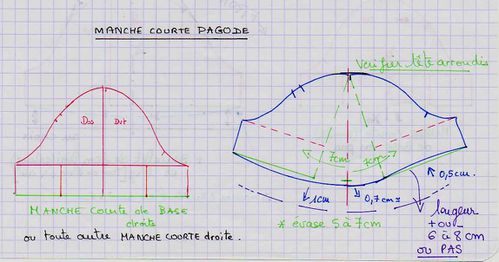 MANCHE COURTE PAGODE
Verifier tête arrondis
Dos Dvt
7cm 7cm
MANCHE Courte de BASE
droite
ou toute autre MANCHE COURTE droite.
1cm
0,7cm
0,5cm.
* évase 5 à 7cm
largeur
6 à 8 cm
ou PAS